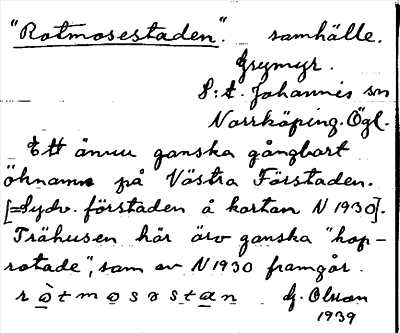 "Rotmosestaden". samhälle.
Grymyr.
S:t. Johannis sn
Norrköping. Ögl.
Ett ännu ganska gångbart
öknamn på Västra Förstaden.
[=Sydv. förstaden å kartan N 1930].
Trähusen här äro ganska "hop-
rotade", som av N 1930 framgår.
r ò t m o s ə s t a n G. Olson
1939